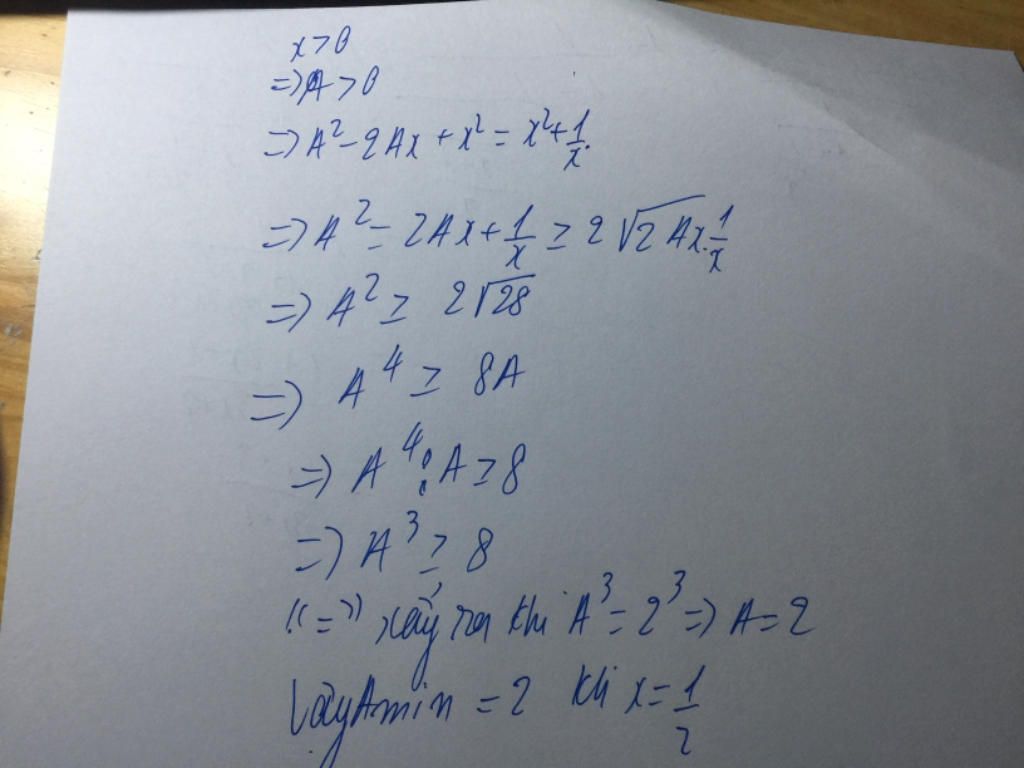 x > 0
=> A > 0
=> A² - 2Ax + x² = x² + 1/x.
=> A² = 2Ax + 1/x ≥ 2√2Ax.1/x
=> A² ≥ 2√28
=> A⁴ ≥ 8A
=> A⁴ : A ≥ 8
=> A³ ≥ 8
"=" xảy ra khi A³ = 2³ => A = 2
Vậy Amin = 2 khi x = 1/2